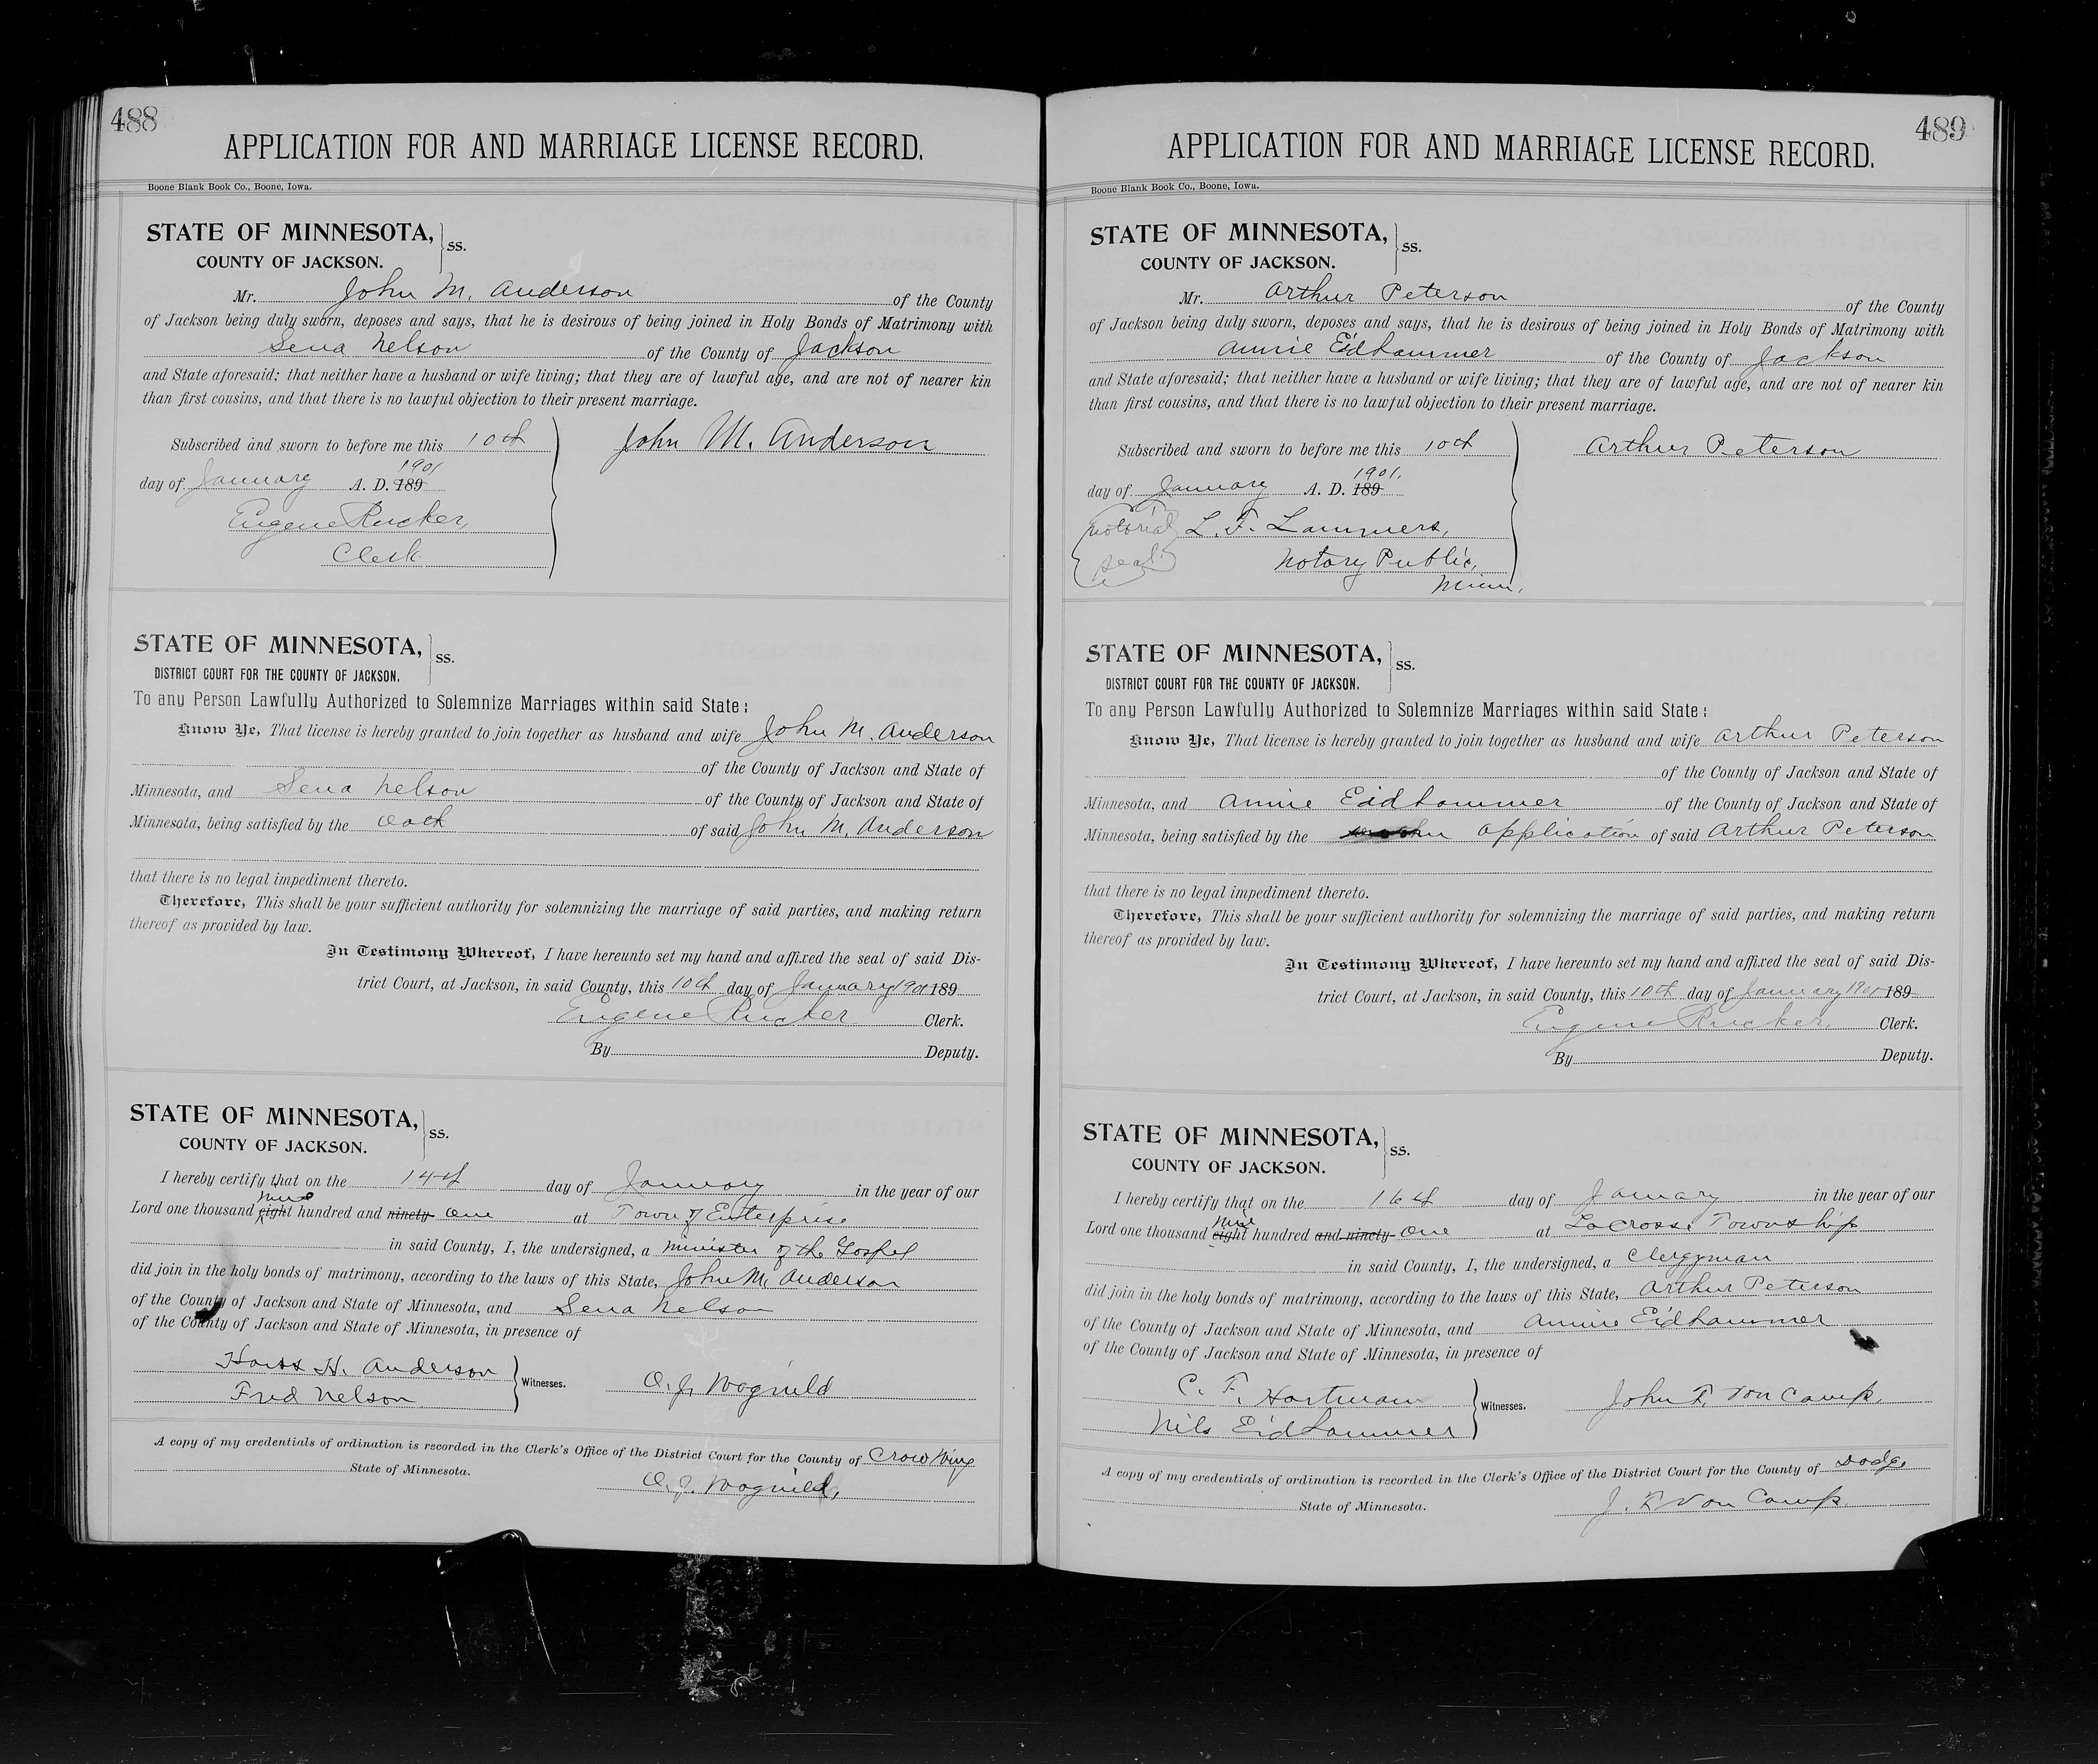 488
APPLICATION FOR AND MARRIAGE LICENSE RECORD.
Boone Blank Book Co., Boone, Iowa.
STATE OF MINNESOTA,
COUNTY OF JACKSON.
ss.
Mr. John M. Anderson of the County
of Jackson being duly sworn, deposes and says, that he is desirous of being joined in Holy Bonds of Matrimony with
Sena Nelson of the County of Jackson
and State aforesaid; that neither have a husband or wife living; that they are of lawful age, and are not of nearer kin
than first cousins, and that there is no lawful objection to their present marriage.
Subscribed and sworn to before me this 10th
1901
day of January A. D. 189
Eugene Rucker,
Clerk
John M. Anderson
STATE OF MINNESOTA,
DISTRICT COURT FOR THE COUNTY OF JACKSON.
ss.
To any Person Lawfully Authorized to Solemnize Marriages within said State:
Know Ye, That license is hereby granted to join together as husband and wife John M. Anderson
of the County of Jackson and State of
Minnesota, and Sena Nelson of the County of Jackson and State of
Minnesota, being satisfied by the oath of said John M. Anderson
that there is no legal impediment thereto.
Therefore, This shall be your sufficient authority for solemnizing the marriage of said parties, and making return
thereof as provided by law.
In Testimony Whereof, I have hereunto set my hand and affixed the seal of said Dis-
trict Court, at Jackson, in said County, this 10th day of January 1901 189
Eugene Rucker Clerk.
By Deputy.
STATE OF MINNESOTA,
COUNTY OF JACKSON.
ss.
I hereby certify that on the 14th day of January in the year of our
nine
Lord one thousand eight hundred and ninety- one at Town of Enterprise
in said County, I, the undersigned, a Minister of the Gospel
did join in the holy bonds of matrimony, according to the laws of this State, John M. Anderson
of the County of Jackson and State of Minnesota, and Sena Nelson
of the County of Jackson and State of Minnesota, in presence of
H. Anderson
Fred Nelson
Witnesses.
O. J. Wagnild
A copy of my credentials of ordination is recorded in the Clerk's Office of the District Court for the County of Crow Wing
State of Minnesota.
O. J. Wagnild,
489
APPLICATION FOR AND MARRIAGE LICENSE RECORD.
Boone Blank Book Co., Boone, Iowa.
STATE OF MINNESOTA,
COUNTY OF JACKSON.
ss.
Mr. Arthur Peterson of the County
of Jackson being duly sworn, deposes and says, that he is desirous of being joined in Holy Bonds of Matrimony with
Annie Eidhammer of the County of Jackson
and State aforesaid; that neither have a husband or wife living; that they are of lawful age, and are not of nearer kin
than first cousins, and that there is no lawful objection to their present marriage.
Subscribed and sworn to before me this 10th
1901.
day of January A. D. 189
Notorial L. F. Lammers,
seal Notary Public,
Minn.
Arthur Peterson
STATE OF MINNESOTA,
DISTRICT COURT FOR THE COUNTY OF JACKSON.
ss.
To any Person Lawfully Authorized to Solemnize Marriages within said State:
Know Ye, That license is hereby granted to join together as husband and wife Arthur Peterson
of the County of Jackson and State of
Minnesota, and Annie Eidhammer of the County of Jackson and State of
Minnesota, being satisfied by the application of said Arthur Peterson
that there is no legal impediment thereto.
Therefore, This shall be your sufficient authority for solemnizing the marriage of said parties, and making return
thereof as provided by law.
In Testimony Whereof, I have hereunto set my hand and affixed the seal of said Dis-
trict Court, at Jackson, in said County, this 10th day of January 1901 189
Eugene Rucker, Clerk.
By Deputy.
STATE OF MINNESOTA,
COUNTY OF JACKSON.
ss.
I hereby certify that on the 16th day of January in the year of our
nine
Lord one thousand eight hundred and ninety- one at LaCrosse Township
in said County, I, the undersigned, a Clergyman
did join in the holy bonds of matrimony, according to the laws of this State, Arthur Peterson
of the County of Jackson and State of Minnesota, and Annie Eidhammer
of the County of Jackson and State of Minnesota, in presence of
C. F. Hartman
Nils Eidhammer
Witnesses.
John R. Van Camp.
A copy of my credentials of ordination is recorded in the Clerk's Office of the District Court for the County of Dodge
State of Minnesota.
J. R. Van Camp